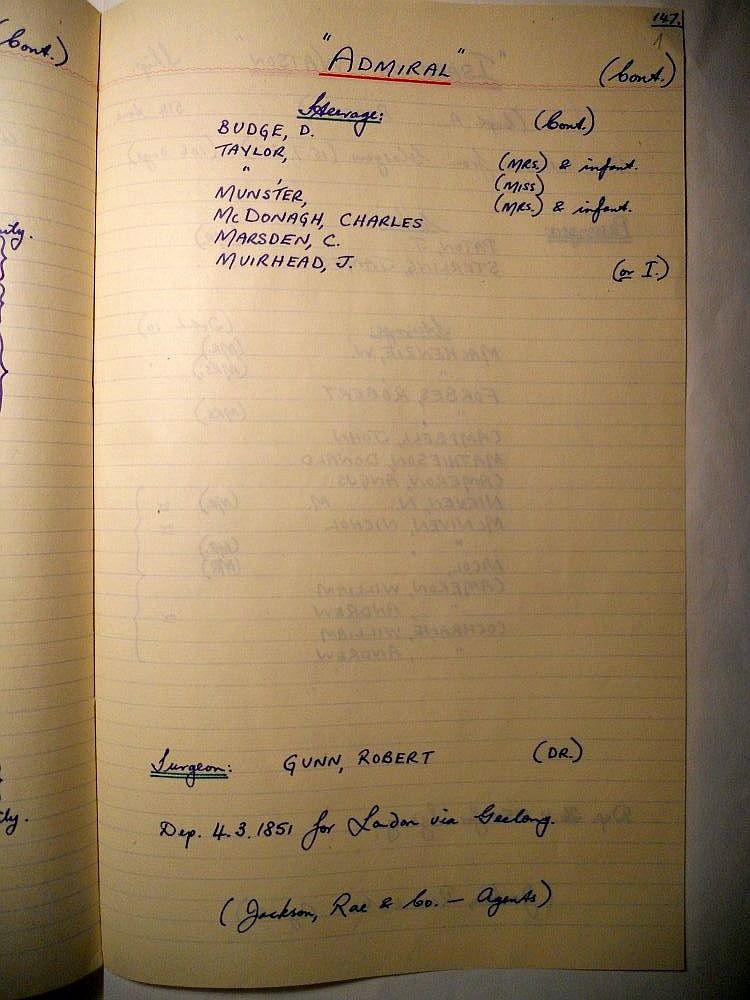 147.
"ADMIRAL" (Cont.)
Steerage: (Cont.)
BUDGE, D.
TAYLOR, (MRS.) & infant.
" , (MISS)
MUNSTER, (MRS.) & infant.
McDONAGH, CHARLES
MARSDEN, C.
MUIRHEAD, J. (or I.)
Surgeon: GUNN, ROBERT (DR.)
Dep. 4.3.1851 for London via Geelong.
(Jackson, Rae & Co. — Agents)
(Cont.)